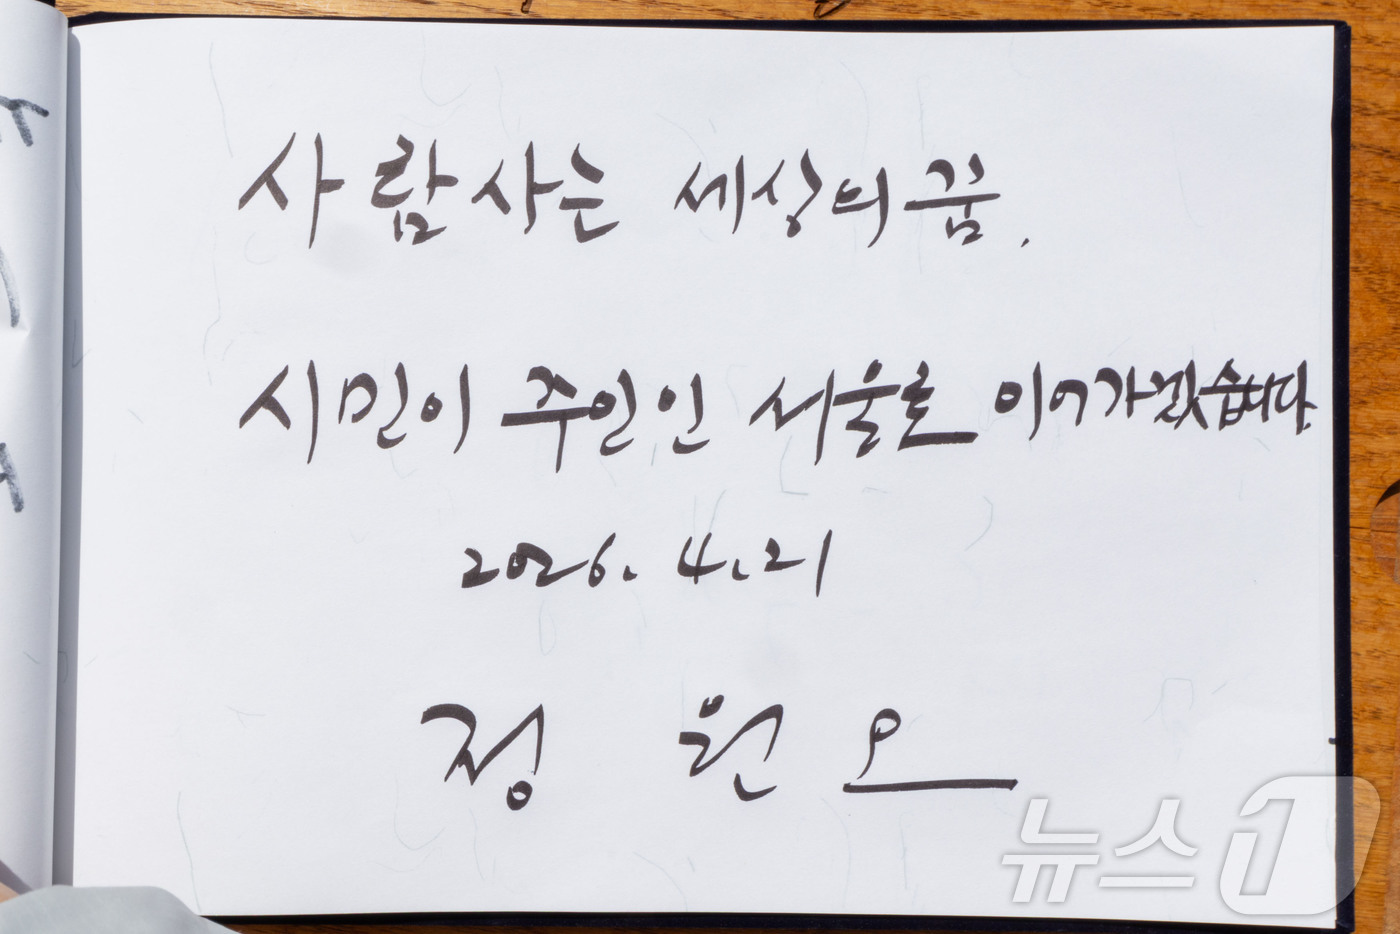 사람사는 세상의 꿈.
시민이 주인인 서울로 이어가겠습니다.
2026. 4. 21
정 원 오
뉴스1